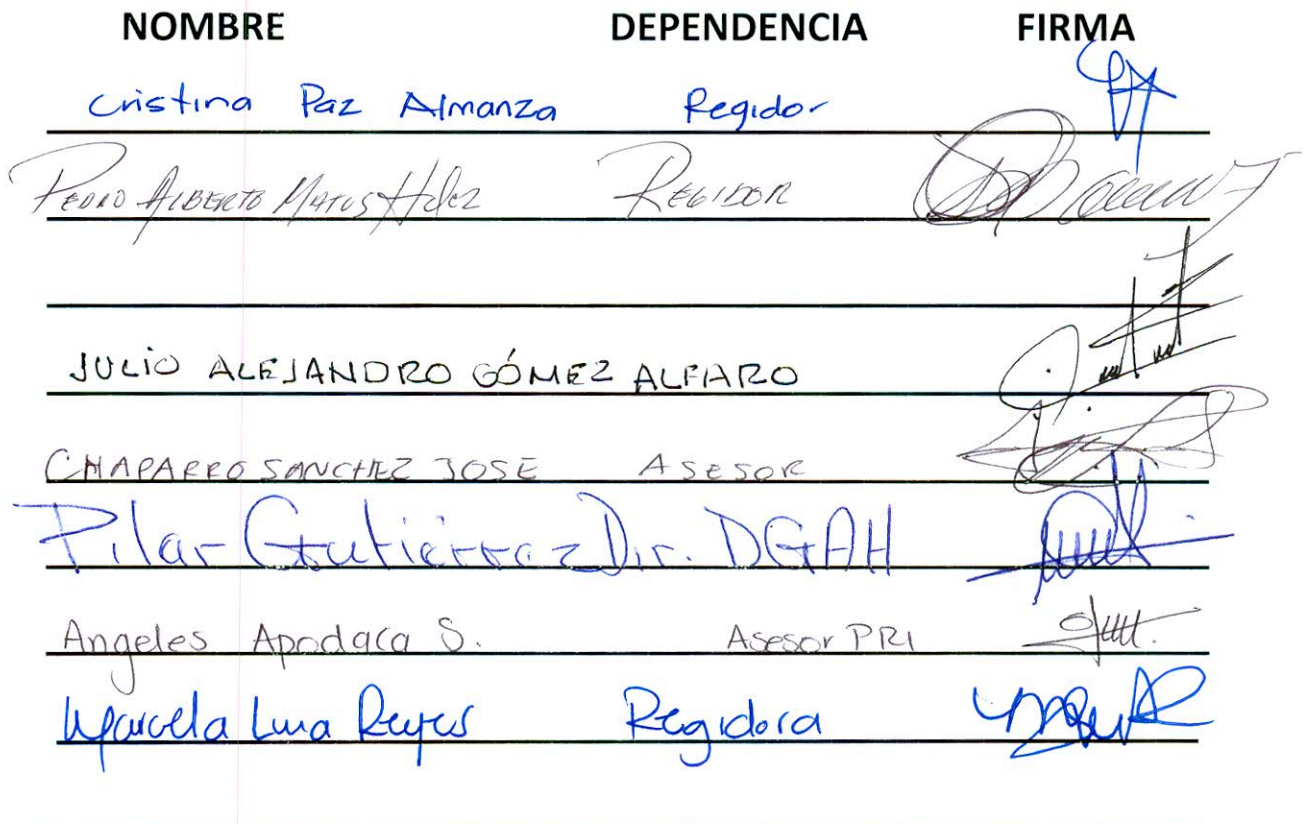 NOMBRE DEPENDENCIA FIRMA
Cristina Paz Almanza Regidor
PEDRO ALBERTO MATUS Hdez REGIDOR
JULIO ALEJANDRO GÓMEZ ALFARO
CHAPARRO SANCHEZ JOSE ASESOR
Pilar Gutiérrez Dir. DGAH
Angeles Apodaca S. Asesor PRI
Marcela Luna Reyes Regidora